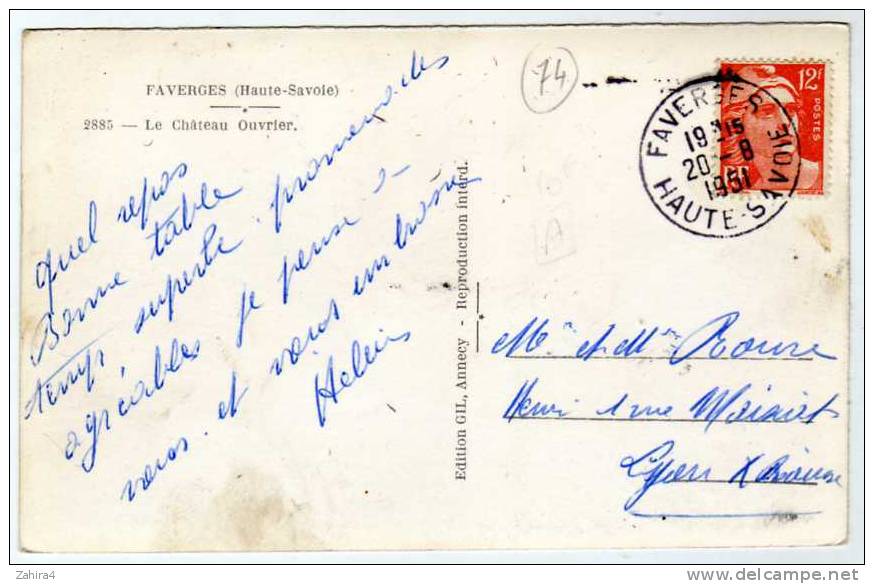 FAVERGES (Haute-Savoie)
2885 — Le Château Ouvrier.
74
12F
POSTES
FAVERGES
19H15
20-8
1951
HAUTE-SAVOIE
Quel repos
Bonne table
temps superbe promenades
agréables. je pense à
vous. et vous embrasse
Edition GIL, Annecy - Reproduction interd.
A
Mr et Mme
Henri 1 rue
Lyon
Zahira4
delcampe.net